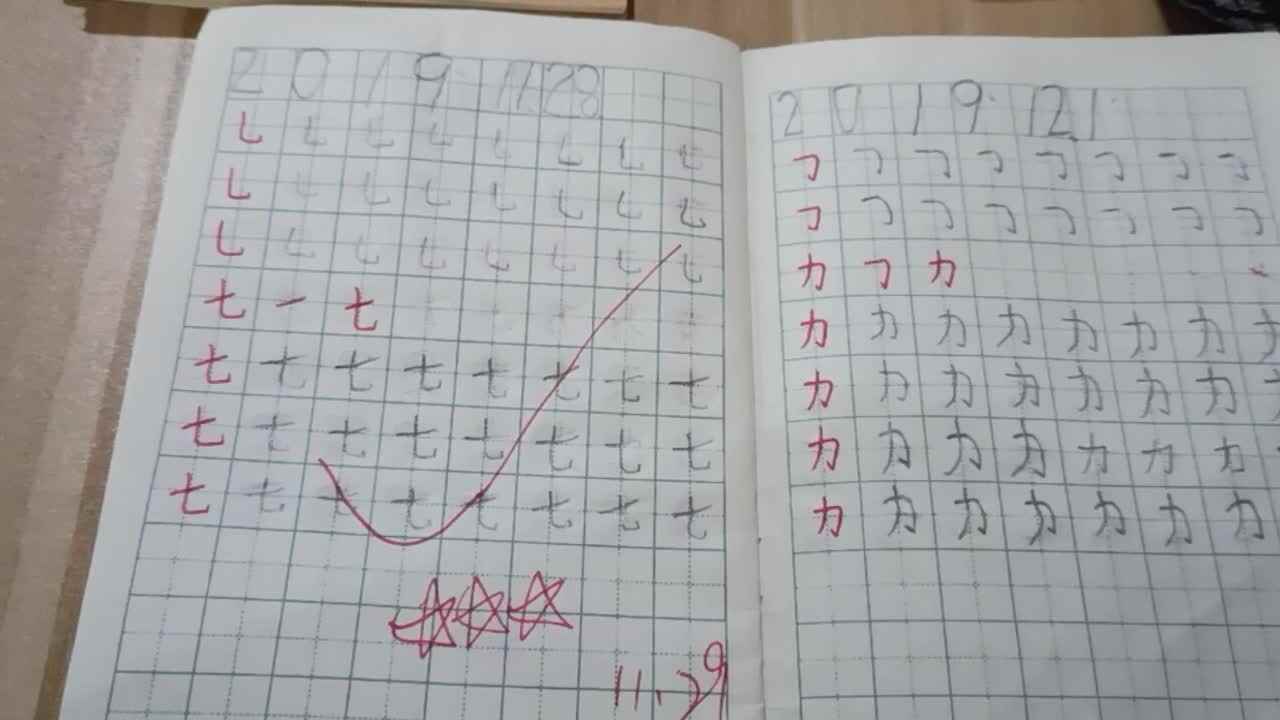 2019.1128
乚乚乚乚乚乚乚乚
乚乚乚乚乚乚乚乚
乚乚乚乚乚乚乚乚
七一七
七七七七七七七七
七七七七七七七七
七七七七七七七七
11.29
2019.121.
㇆㇆㇆㇆㇆㇆㇆㇆
㇆㇆㇆㇆㇆㇆㇆㇆
力㇆力
力力力力力力力力
力力力力力力力
力力力力力力力
力力力力力力力